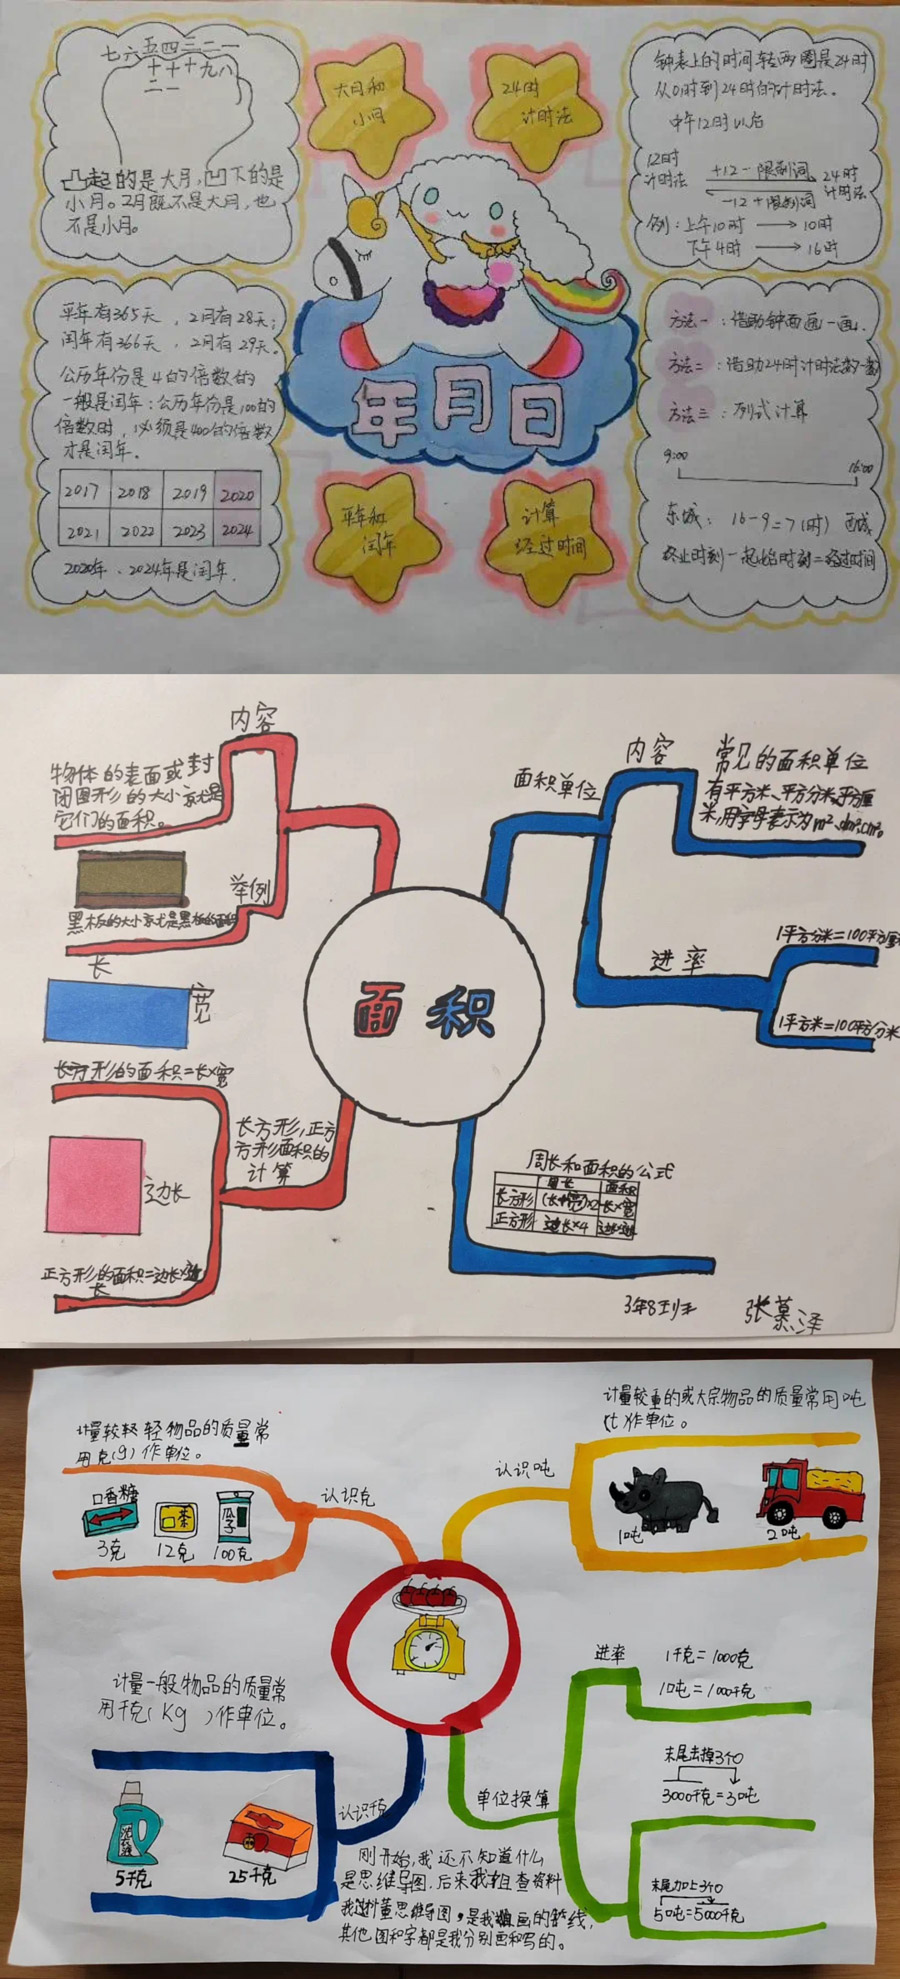 七六五四三二一
十十十九八
二一
凸起的是大月,凹下的是
小月。2月既不是大月,也
不是小月。
大月和
小月
24时
计时法
钟表上的时间转两圈是24时
从0时到24时的计时法。
中午12时以后
12时
计时法
+12-限制词
-12+限制词
24时
计时法
例:上午10时 → 10时
下午4时 → 16时
平年有365天,2月有28天;
闰年有366天,2月有29天。
公历年份是4的倍数的
一般是闰年;公历年份是100的
倍数时,必须是400的倍数
才是闰年.
2017 2018 2019 2020
2021 2022 2023 2024
2020年、2024年是闰年.
年月日
平年和
闰年
计算
经过时间
方法一:借助钟面画一画.
方法二:借助24时计时法数一数
方法三:列式计算
9:00
16:00
16-9=7(时)
终止时刻-起始时刻=经过时间
内容
物体的表面或封
闭图形的大小就是
它们的面积。
举例
黑板的大小就是黑板的面积
长
宽
长方形的面积=长×宽
长方形,正方
方形面积的
计算
边长
正方形的面积=边长×边
长
面积
面积单位
内容
常见的面积单位
有平方米、平方分米、平方厘
米,用字母表示为m²、dm²、cm²。
进率
1平方分米=100平方厘
1平方米=100平方分米
周长和面积的公式
周长 面积
长方形 (长+宽)×2 长×宽
正方形 边长×4 边长×边长
3年8班
张慕泽
计量较轻物品的质量常
用克(g)作单位。
口香糖
茶
瓜子
3克 12克 100克
认识克
计量较重的或大宗物品的质量常用吨
(t)作单位。
认识吨
1吨 20吨
计量一般物品的质量常
用千克(Kg )作单位。
认识千克
5千克 25千克
进率
1千克=1000克
1吨=1000千克
单位换算
末尾去掉3个0
3000千克=3吨
末尾加上3个0
5吨=5000千克
刚开始,我还不知道什么
是思维导图.后来我和姐查资料
思维导图,是我姐画的管线,
其他图和字都是我分别画和写的。